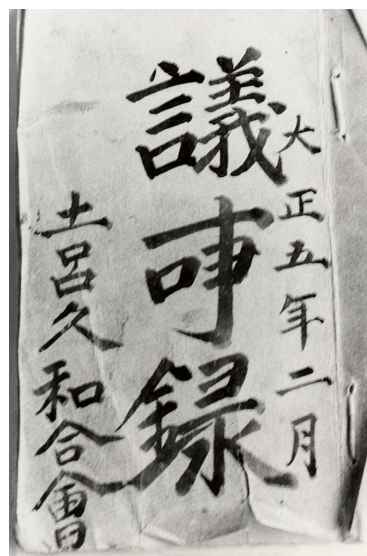 大正五年二月
議事録
土呂久和合會